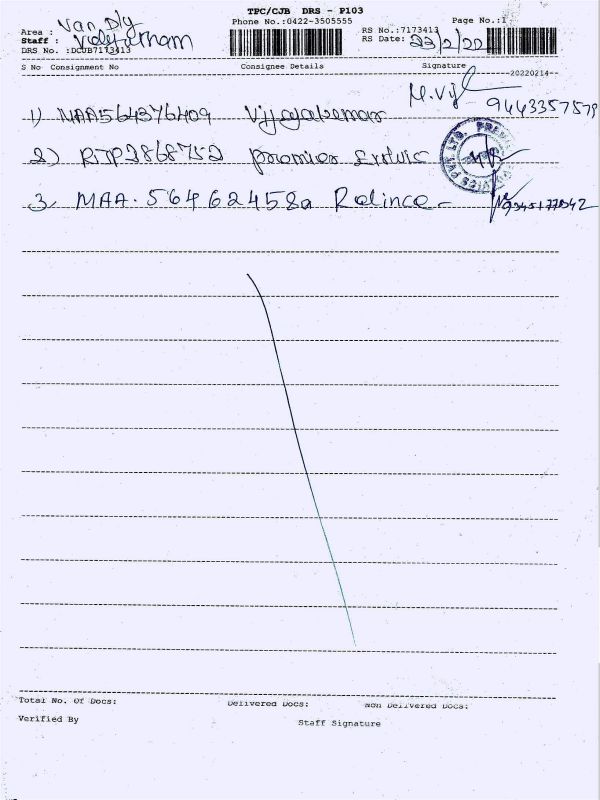 TPC/CJB DRS - P103
Phone No.:0422-3505555
Page No.:1
Area : Van Dly
Staff :
DRS No. :DCUB7173413
RS No.:7173413
RS Date: 23/2/20
S No Consignment No Consignee Details Signature
--20220214--
1) MAA564376409 Vijayakumar M.Vij 9443357579
2) RJP2868752 Premier
3. MAA.564624580 Relince -
Total No. Of Docs: Delivered Docs: Non Delivered Docs:
Verified By Staff Signature